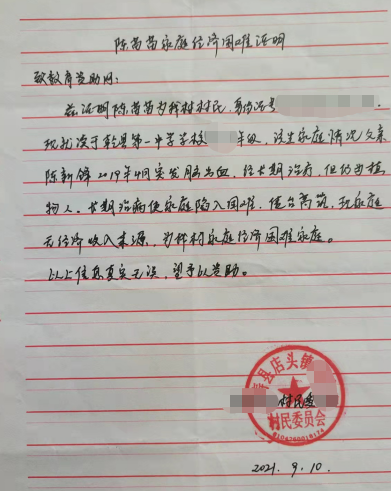 陈苗苗家庭经济困难证明
致教育资助网:
兹证明陈苗苗为我村村民,身份证号
现就读于乾县第一中学学校 年级,该生家庭情况父亲
陈新锋2019年4月突发脑出血,经长期治疗,但仍为植
物人。长期治病使家庭陷入困难,债台高筑,现家庭
无经济收入来源,为我村家庭经济困难家庭。
以上信息真实无误,望予以资助。
县店头镇
村民委
村民委员会
2021.9.10.